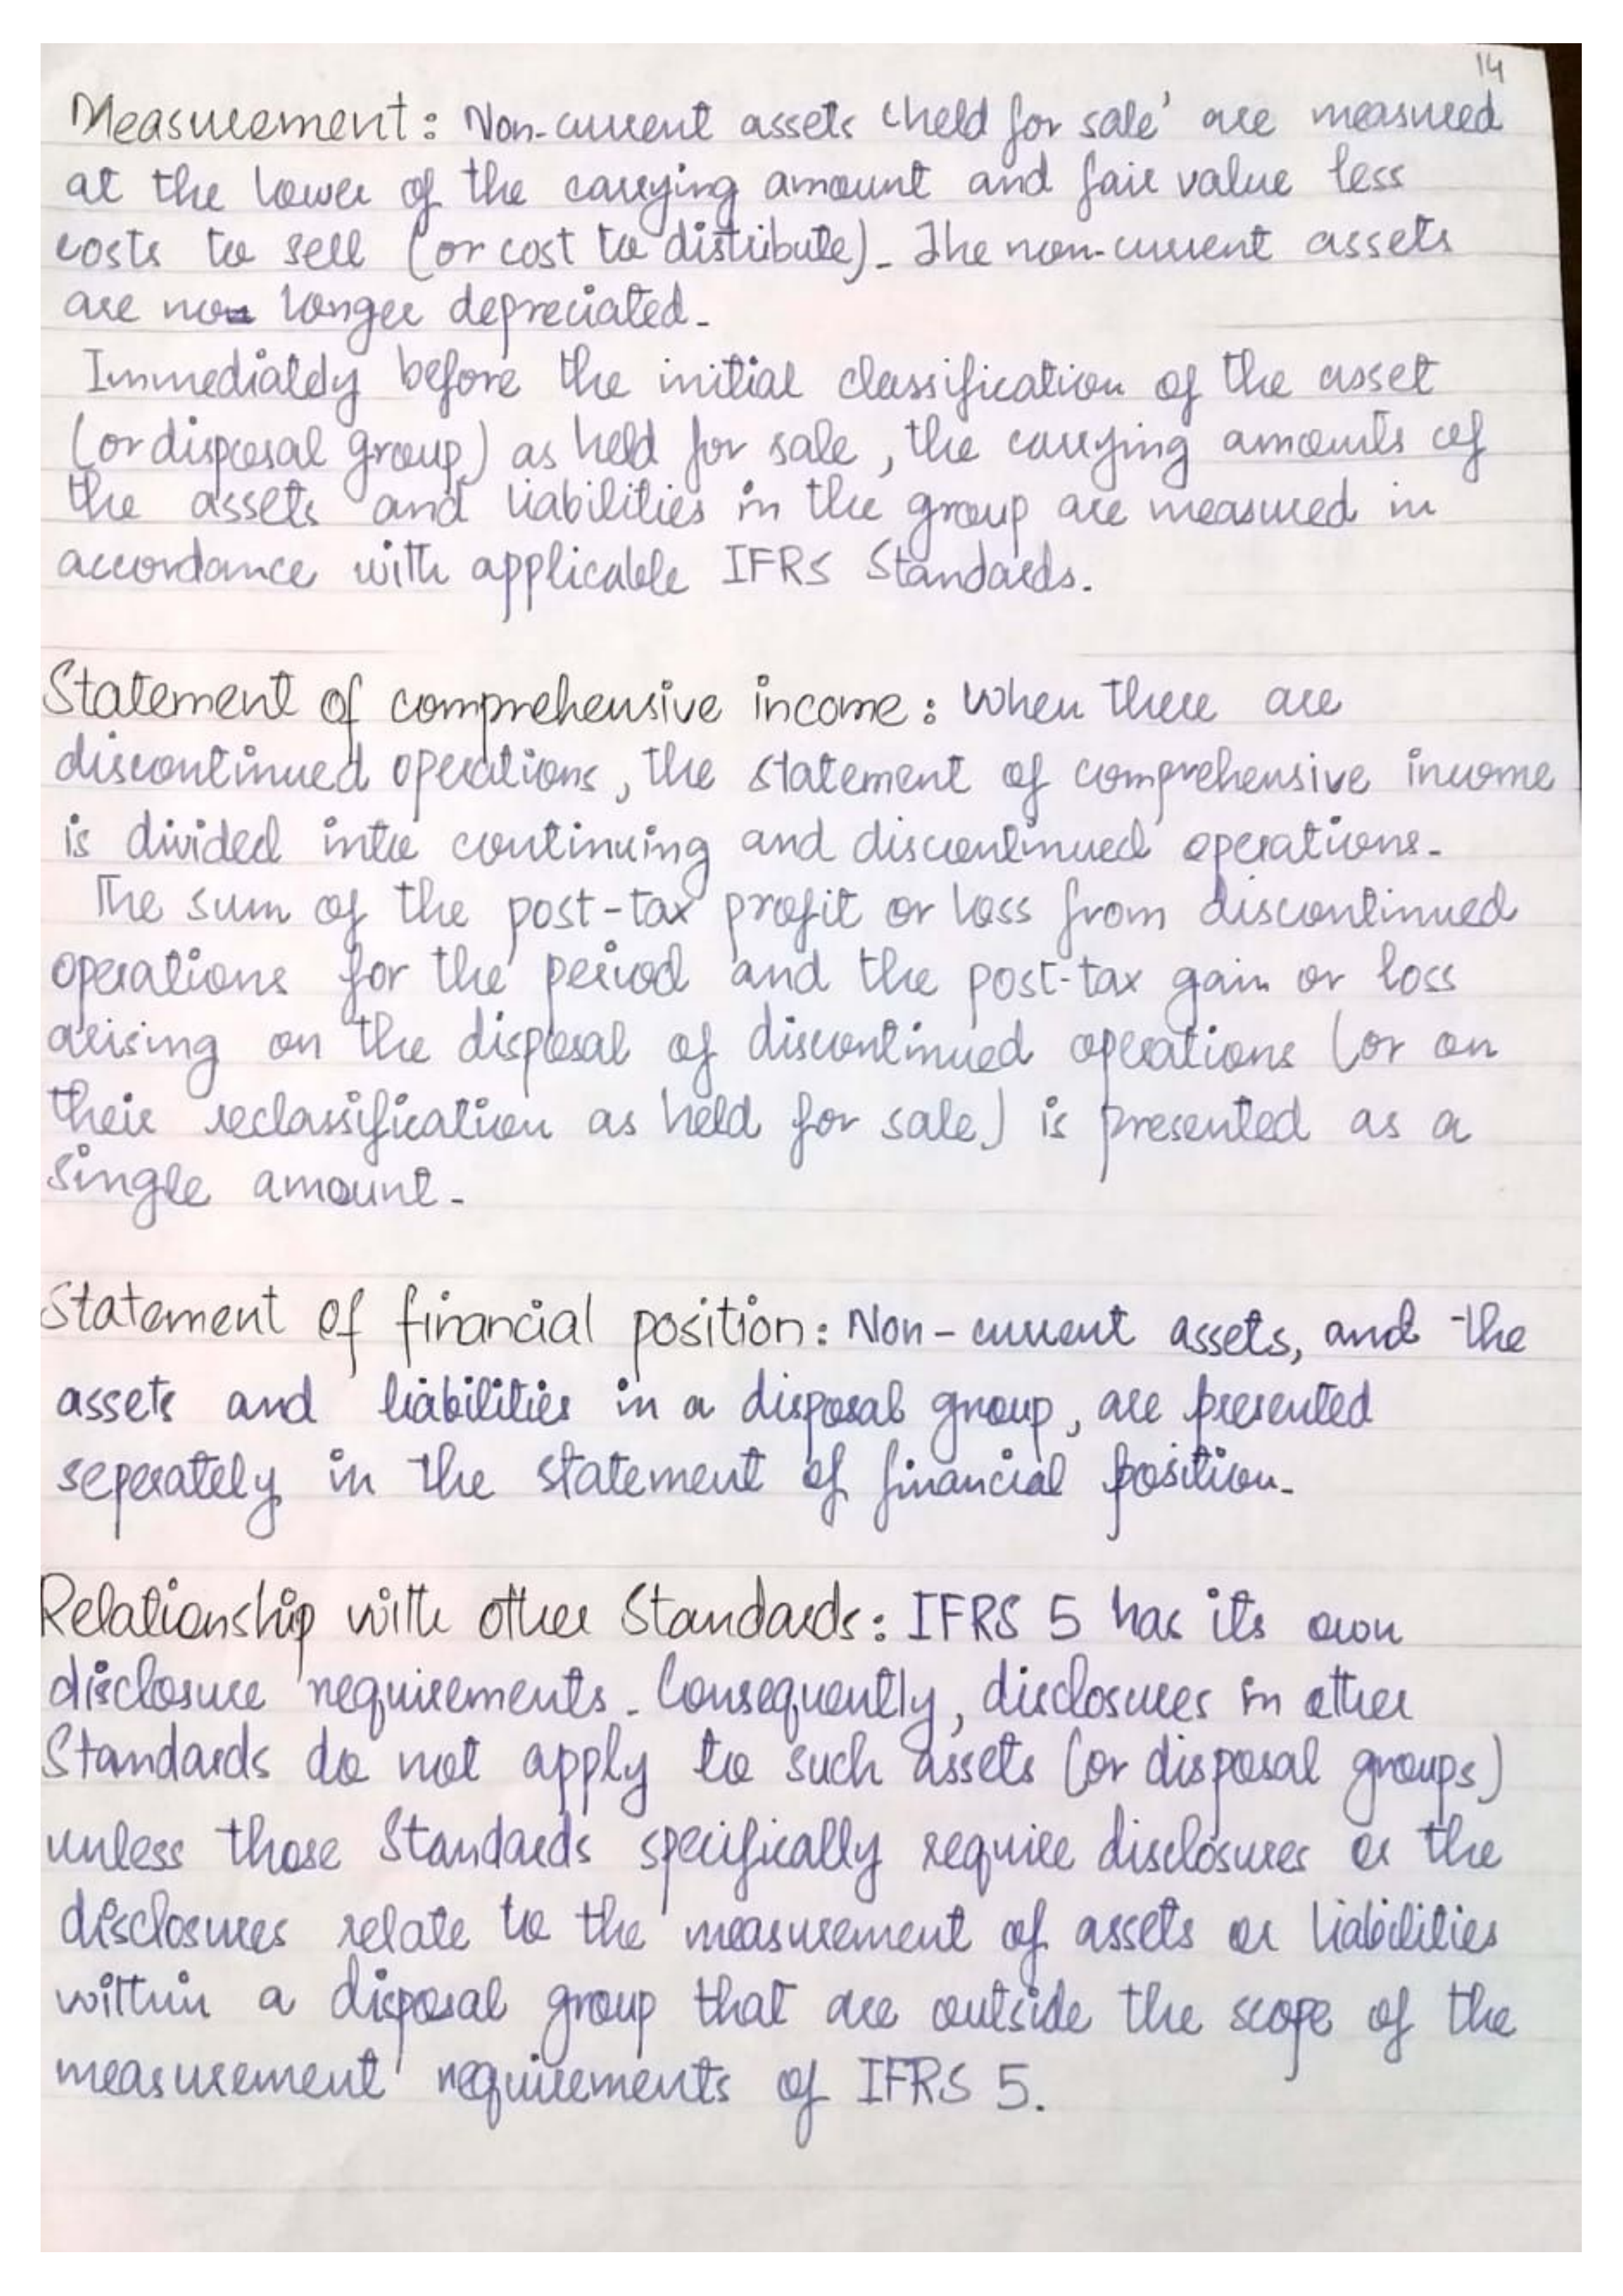 14
Measurement: Non-current assets 'held for sale' are measured
at the lower of the carrying amount and fair value less
costs to sell (or cost to distribute). The non-current assets
are no longer depreciated.
Immediately before the initial classification of the asset
(or disposal group) as held for sale, the carrying amounts of
the assets and liabilities in the group are measured in
accordance with applicable IFRS Standards.
Statement of comprehensive income: When there are
discontinued operations, the statement of comprehensive income
is divided into continuing and discontinued operations.
The sum of the post-tax profit or loss from discontinued
operations for the period and the post-tax gain or loss
arising on the disposal of discontinued operations (or on
their reclassification as held for sale) is presented as a
single amount.
Statement of financial position: Non-current assets, and the
assets and liabilities in a disposal group, are presented
seperately in the statement of financial position.
Relationship with other Standards: IFRS 5 has its own
disclosure requirements. Consequently, disclosures in other
Standards do not apply to such assets (or disposal groups)
unless those Standards specifically require disclosures or the
disclosures relate to the measurement of assets or liabilities
within a disposal group that are outside the scope of the
measurement requirements of IFRS 5.